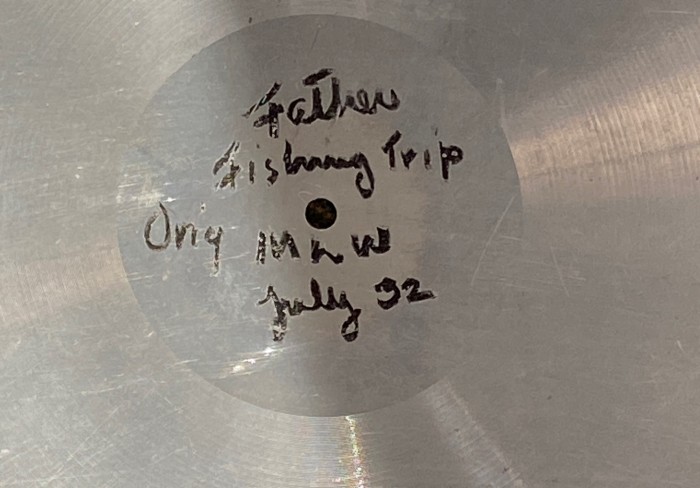 Father
Fishing Trip
Orig M L W
July 32